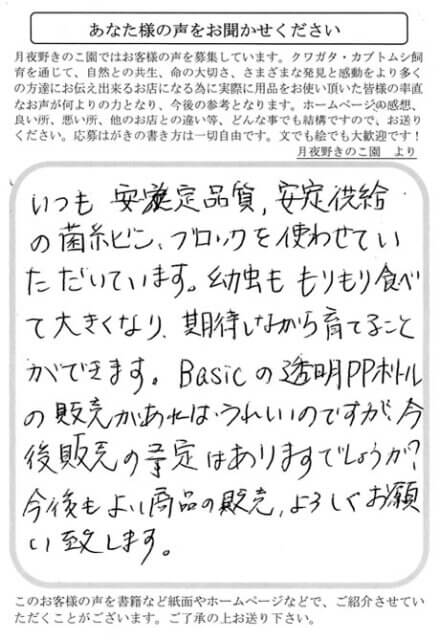 あなた様の声をお聞かせください
月夜野きのこ園ではお客様の声を募集しています。クワガタ・カブトムシ飼
育を通じて、自然との共生、命の大切さ、さまざまな発見と感動をより多く
の方達にお伝え出来るお店になる為に実際に用品をお使い頂いた皆様の率直
なお声が何よりの力となり、今後の参考となります。ホームページの感想、
良い所、悪い所、他のお店との違い等、どんな事でも結構ですので、お送り
ください。応募はがきの書き方は一切自由です。文でも絵でも大歓迎です！
月夜野きのこ園　より
いつも 安定品質,安定供給
の菌糸ビン、ブロックを使わせてい
ただいています。幼虫も もりもり食べ
て大きくなり、期待しながら育てること
ができます。Basicの透明PPボトル
の販売があればうれしいのですが、今
後販売の予定はありますでしょうか?
今後もよい商品の販売,よろしくお願
い致します。
このお客様の声を書籍など紙面やホームページなどで、ご紹介させてい
ただくことがございます。ご了承の上お送り下さい。